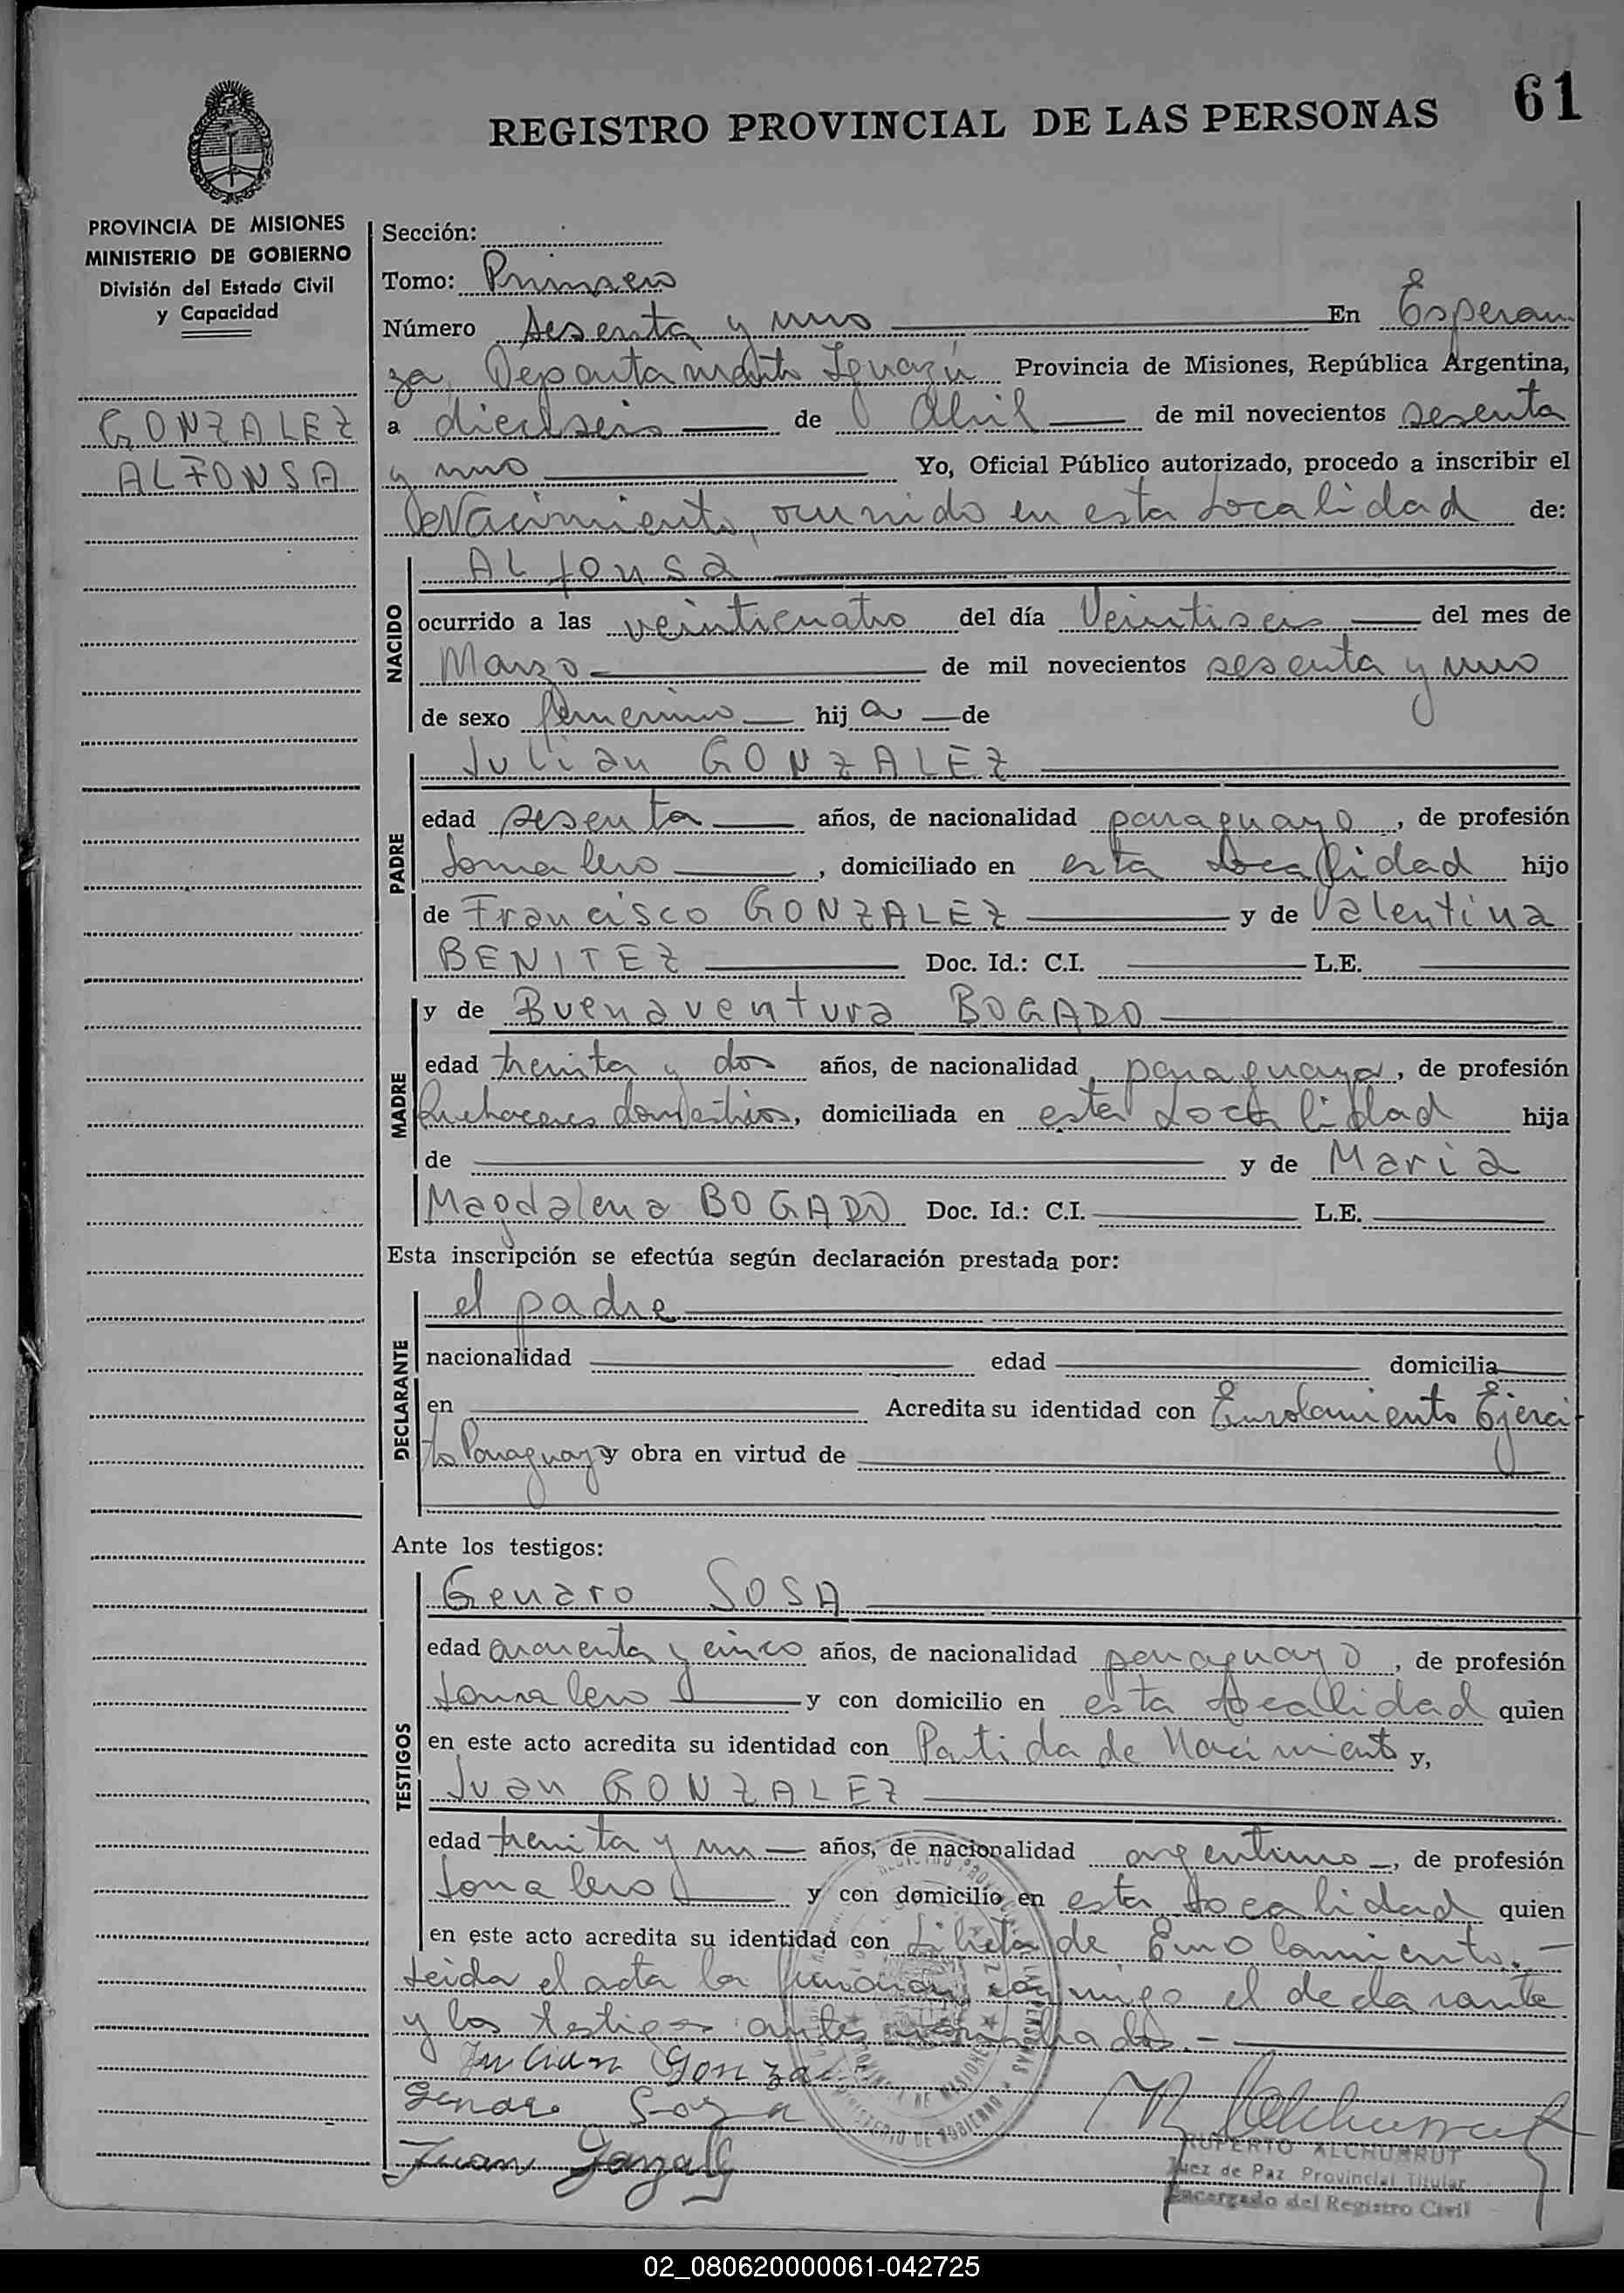 REGISTRO PROVINCIAL DE LAS PERSONAS 61
PROVINCIA DE MISIONES
MINISTERIO DE GOBIERNO
División del Estado Civil
y Capacidad
GONZALEZ
ALFONSA
Sección:
Tomo: Primero
Número Sesenta y uno En Esperan
za, Departamento Iguazú Provincia de Misiones, República Argentina,
a dieciseis de Abril de mil novecientos sesenta
y uno Yo, Oficial Público autorizado, procedo a inscribir el
Nacimiento, ocurrido en esta Localidad de:
NACIDO
Alfonsa
ocurrido a las veinticuatro del día Veintiseis del mes de
Marzo de mil novecientos sesenta y uno
de sexo femenino hij a de
PADRE
Julian GONZALEZ
edad sesenta años, de nacionalidad paraguayo, de profesión
Jornalero, domiciliado en esta Localidad hijo
de Francisco GONZALEZ y de Valentina
BENITEZ Doc. Id.: C.I. L.E.
MADRE
y de Buenaventura BOGADO
edad treinta y dos años, de nacionalidad paraguaya, de profesión
Quehaceres domesticos, domiciliada en esta Localidad hija
de y de Maria
Magdalena BOGADO Doc. Id.: C.I. L.E.
Esta inscripción se efectúa según declaración prestada por:
DECLARANTE
el padre
nacionalidad edad domicilia
en Acredita su identidad con Enrolamiento Ejerci
to Paraguayo y obra en virtud de
Ante los testigos:
TESTIGOS
Genaro SOSA
edad cuarenta y cinco años, de nacionalidad paraguayo, de profesión
Jornalero y con domicilio en esta Localidad quien
en este acto acredita su identidad con Partida de Nacimiento y,
Juan GONZALEZ
edad treinta y un años, de nacionalidad argentino, de profesión
Jornalero y con domicilio en esta Localidad quien
en este acto acredita su identidad con Libreta de Enrolamiento.-
Leida el acta la firman conmigo el declarante
y los testigos antes nombrados.-
Julian Gonzal
Genaro Sosa
Juan Gonzalez
RUPERTO ALCHURRUT
Juez de Paz Provincial Titular
Encargado del Registro Civil
02_080620000061-042725